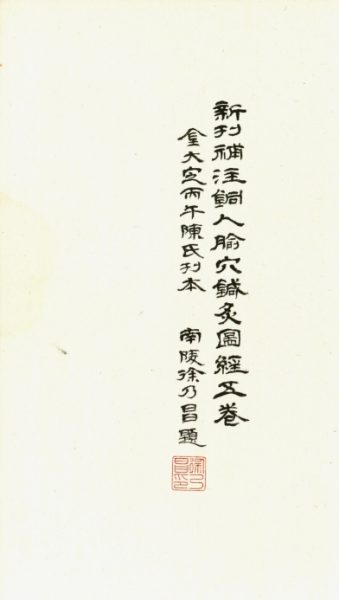 新刊補注銅人腧穴鍼灸圖經五卷
金大定丙午陳氏刊本
南陵徐乃昌題
徐乃昌印